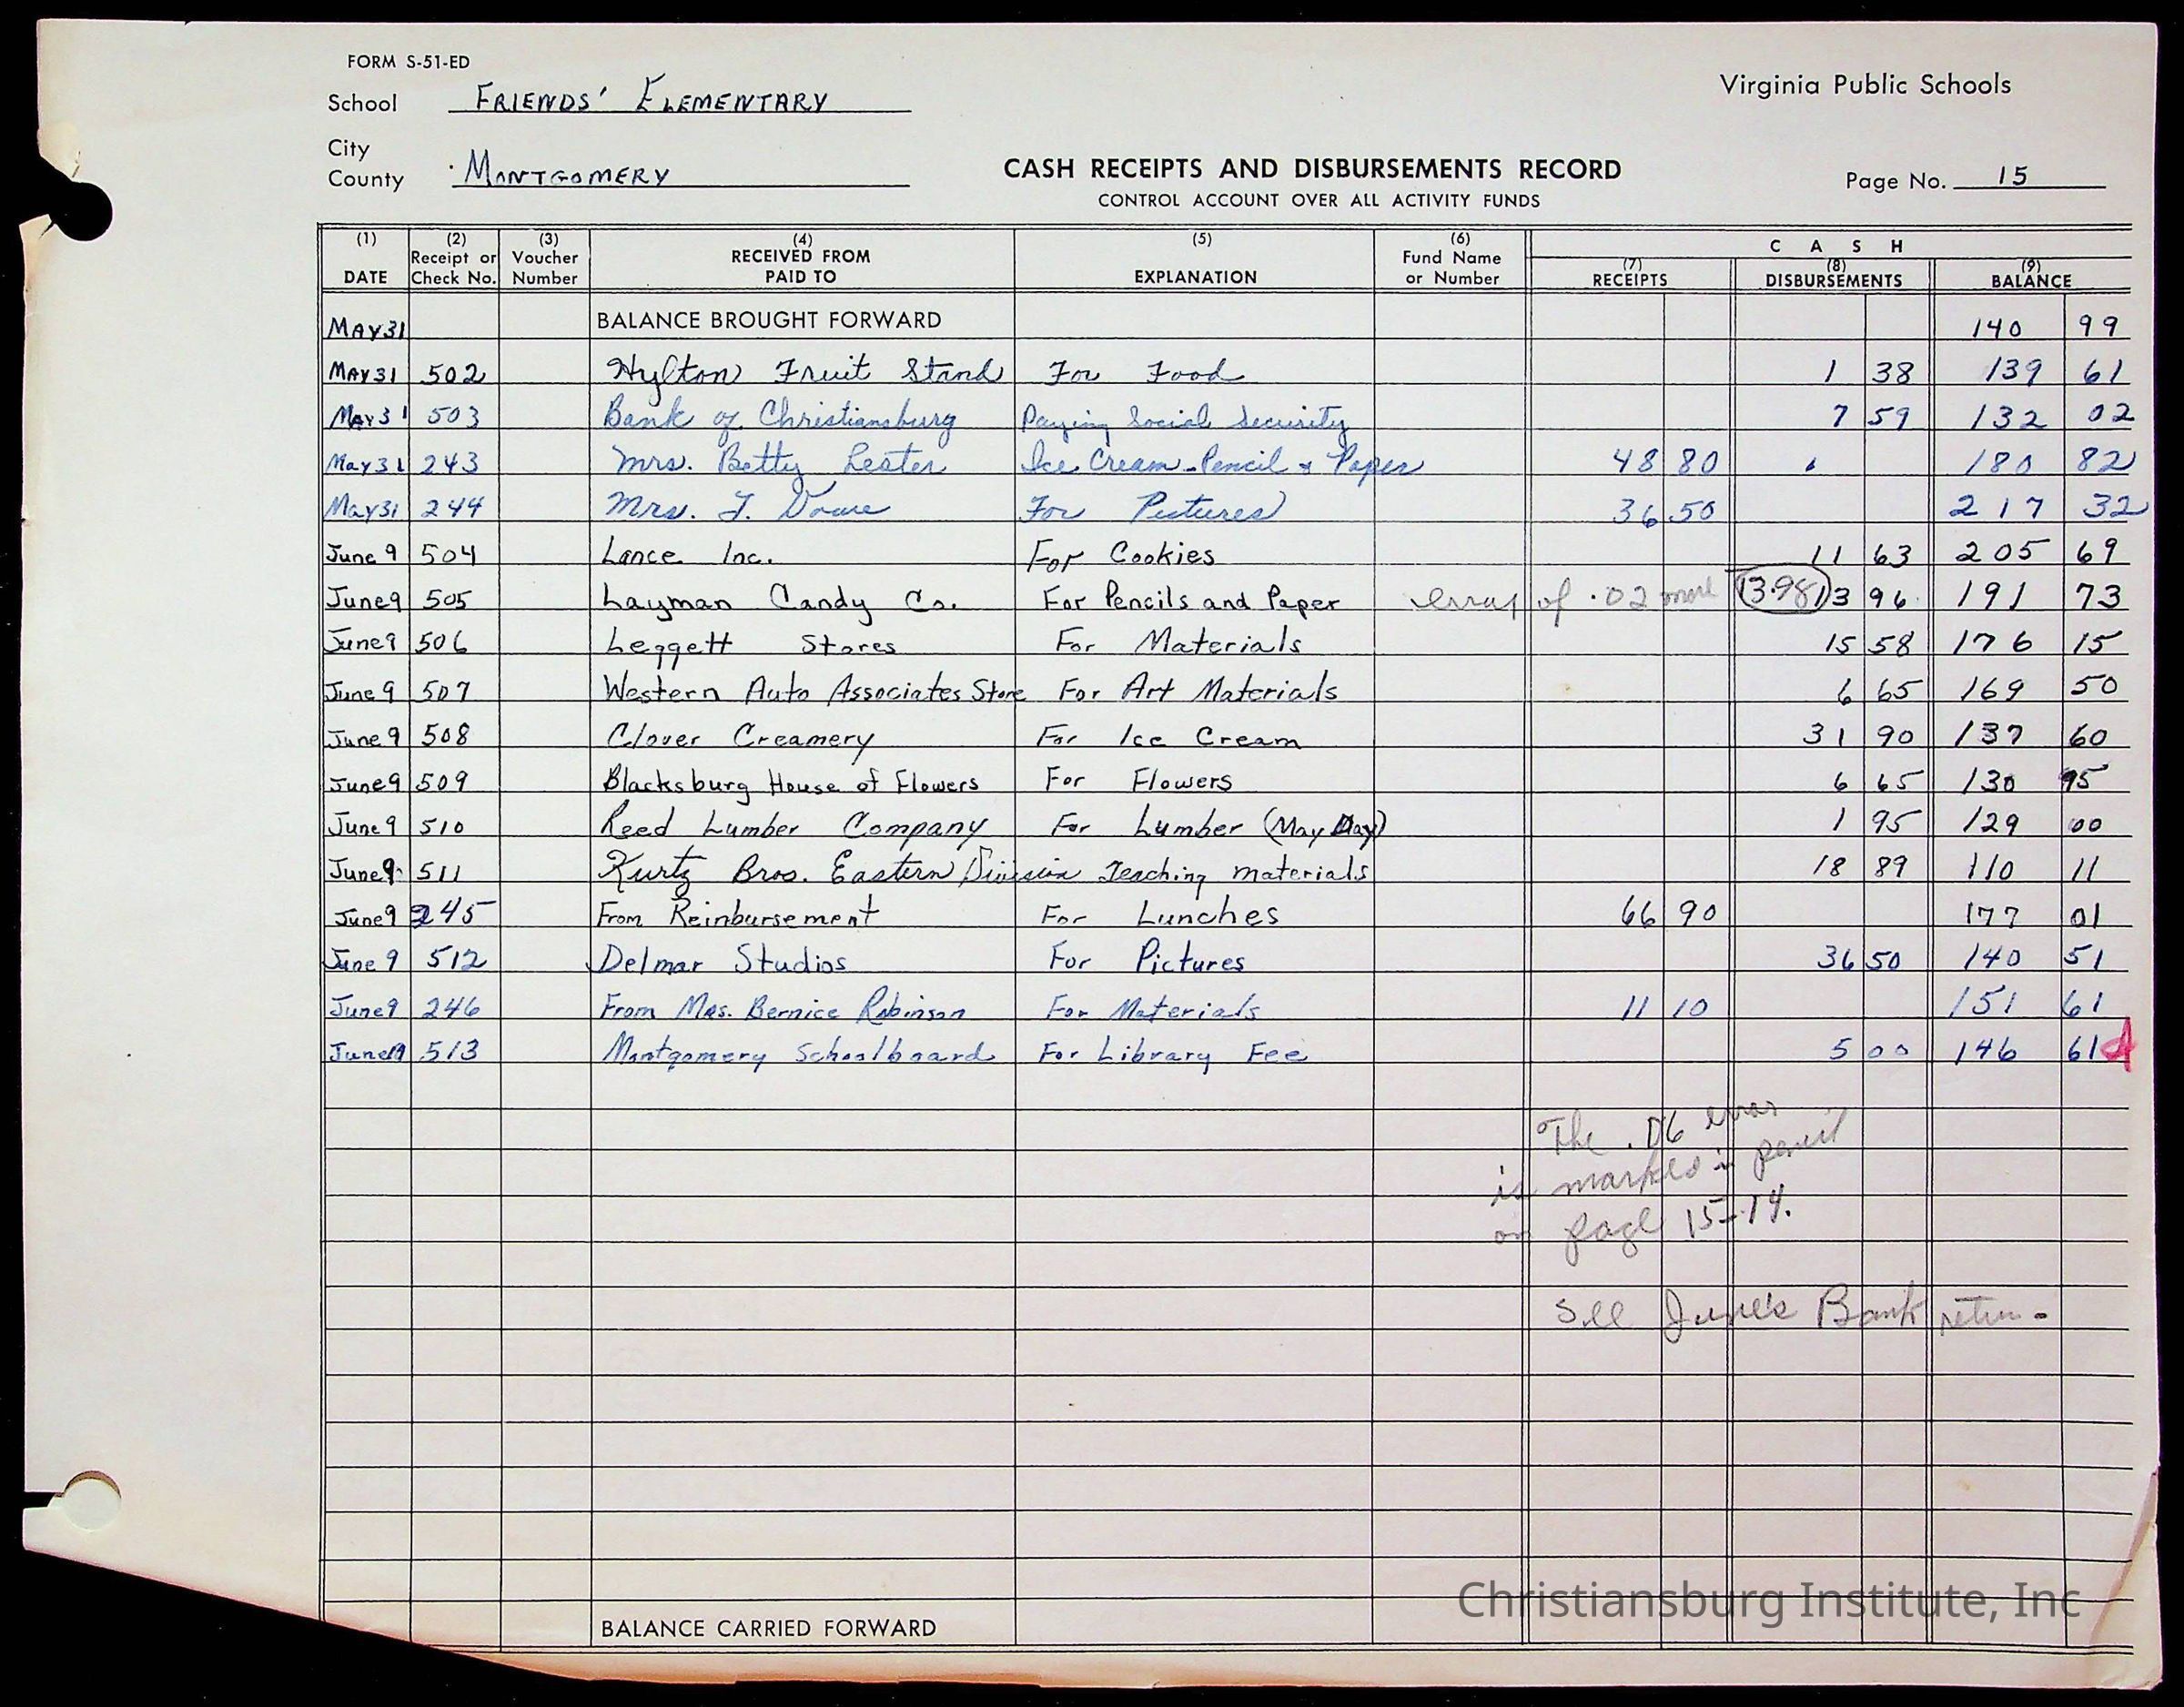 FORM S-51-ED
Virginia Public Schools
School FRIENDS' ELEMENTARY
City
County MONTGOMERY
CASH RECEIPTS AND DISBURSEMENTS RECORD
CONTROL ACCOUNT OVER ALL ACTIVITY FUNDS
Page No. 15
(1) DATE (2) Receipt or Check No. (3) Voucher Number (4) RECEIVED FROM PAID TO (5) EXPLANATION (6) Fund Name or Number CASH (7) RECEIPTS (8) DISBURSEMENTS (9) BALANCE
MAY 31 BALANCE BROUGHT FORWARD 140 99
MAY 31 502 Hylton Fruit Stand For Food 1 38 139 61
MAY 31 503 Bank of Christiansburg Paying Social Security 7 59 132 02
May 31 243 Mrs. Betty Lester Ice Cream-Pencil & Paper 48 80 180 82
May 31 244 Mrs. J. Dowe For Pictures 36 50 217 32
June 9 504 Lance Inc. For Cookies 11 63 205 69
June 9 505 Layman Candy Co. For Pencils and Paper error of .02 more 13.98 13 96 191 73
June 9 506 Leggett Stores For Materials 15 58 176 15
June 9 507 Western Auto Associates Store For Art Materials 6 65 169 50
June 9 508 Clover Creamery For Ice Cream 31 90 137 60
June 9 509 Blacksburg House of Flowers For Flowers 6 65 130 95
June 9 510 Reed Lumber Company For Lumber (May Day) 1 95 129 00
June 9 511 Kurtz Bros. Eastern Division Teaching materials 18 89 110 11
June 9 245 From Reinbursement For Lunches 66 90 177 01
June 9 512 Delmar Studios For Pictures 36 50 140 51
June 9 246 From Mrs. Bernice Robinson For Materials 11 10 151 61
June 513 Montgomery Schoolboard For Library Fee 5 00 146 61
The .06 error
is marked in pencil
on page 15-14.
See June's Bank
BALANCE CARRIED FORWARD
Christiansburg Institute, Inc